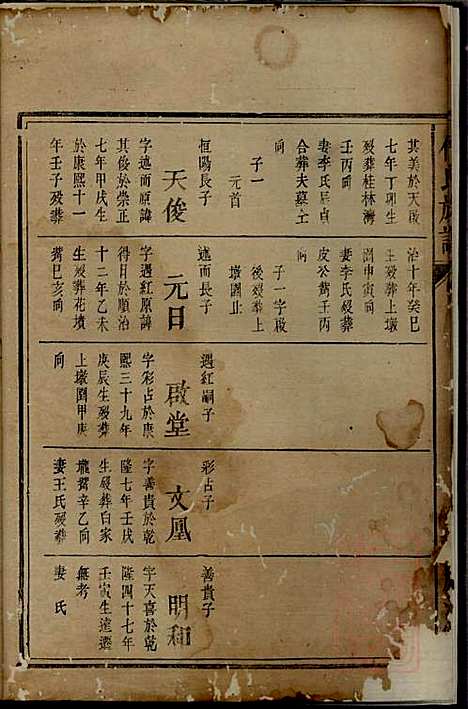 其美於天啟
七年丁卯生
歿葬桂林灣
壬丙向
妻李氏屋貞
合葬夫墓上
向
子一
元首
恒陽長子
天俊
字遠而原諱
其俊於崇正
七年甲戌生
於康熙十一
年壬子歿葬
治十年癸巳
生歿葬上墩
開申寅向
妻李氏歿葬
皮公嘴壬丙
向
子一字啟
後歿葬上
墩園止
遠而長子
元日
字遇紅原諱
得日於順治
十二年乙未
生歿葬花墳
嘴巳亥向
遇紅嗣子
啟堂
字彩占於康
熙三十九年
庚辰生歿葬
上墩園甲庚
向
彩占子
文鳳
字善貴於乾
隆七年壬戌
生歿葬白家
壠嘴辛乙向
妻王氏歿葬
善貴子
明和
字天喜於乾
隆四十七年
壬寅生遠遷
無考
妻 氏
氏族譜